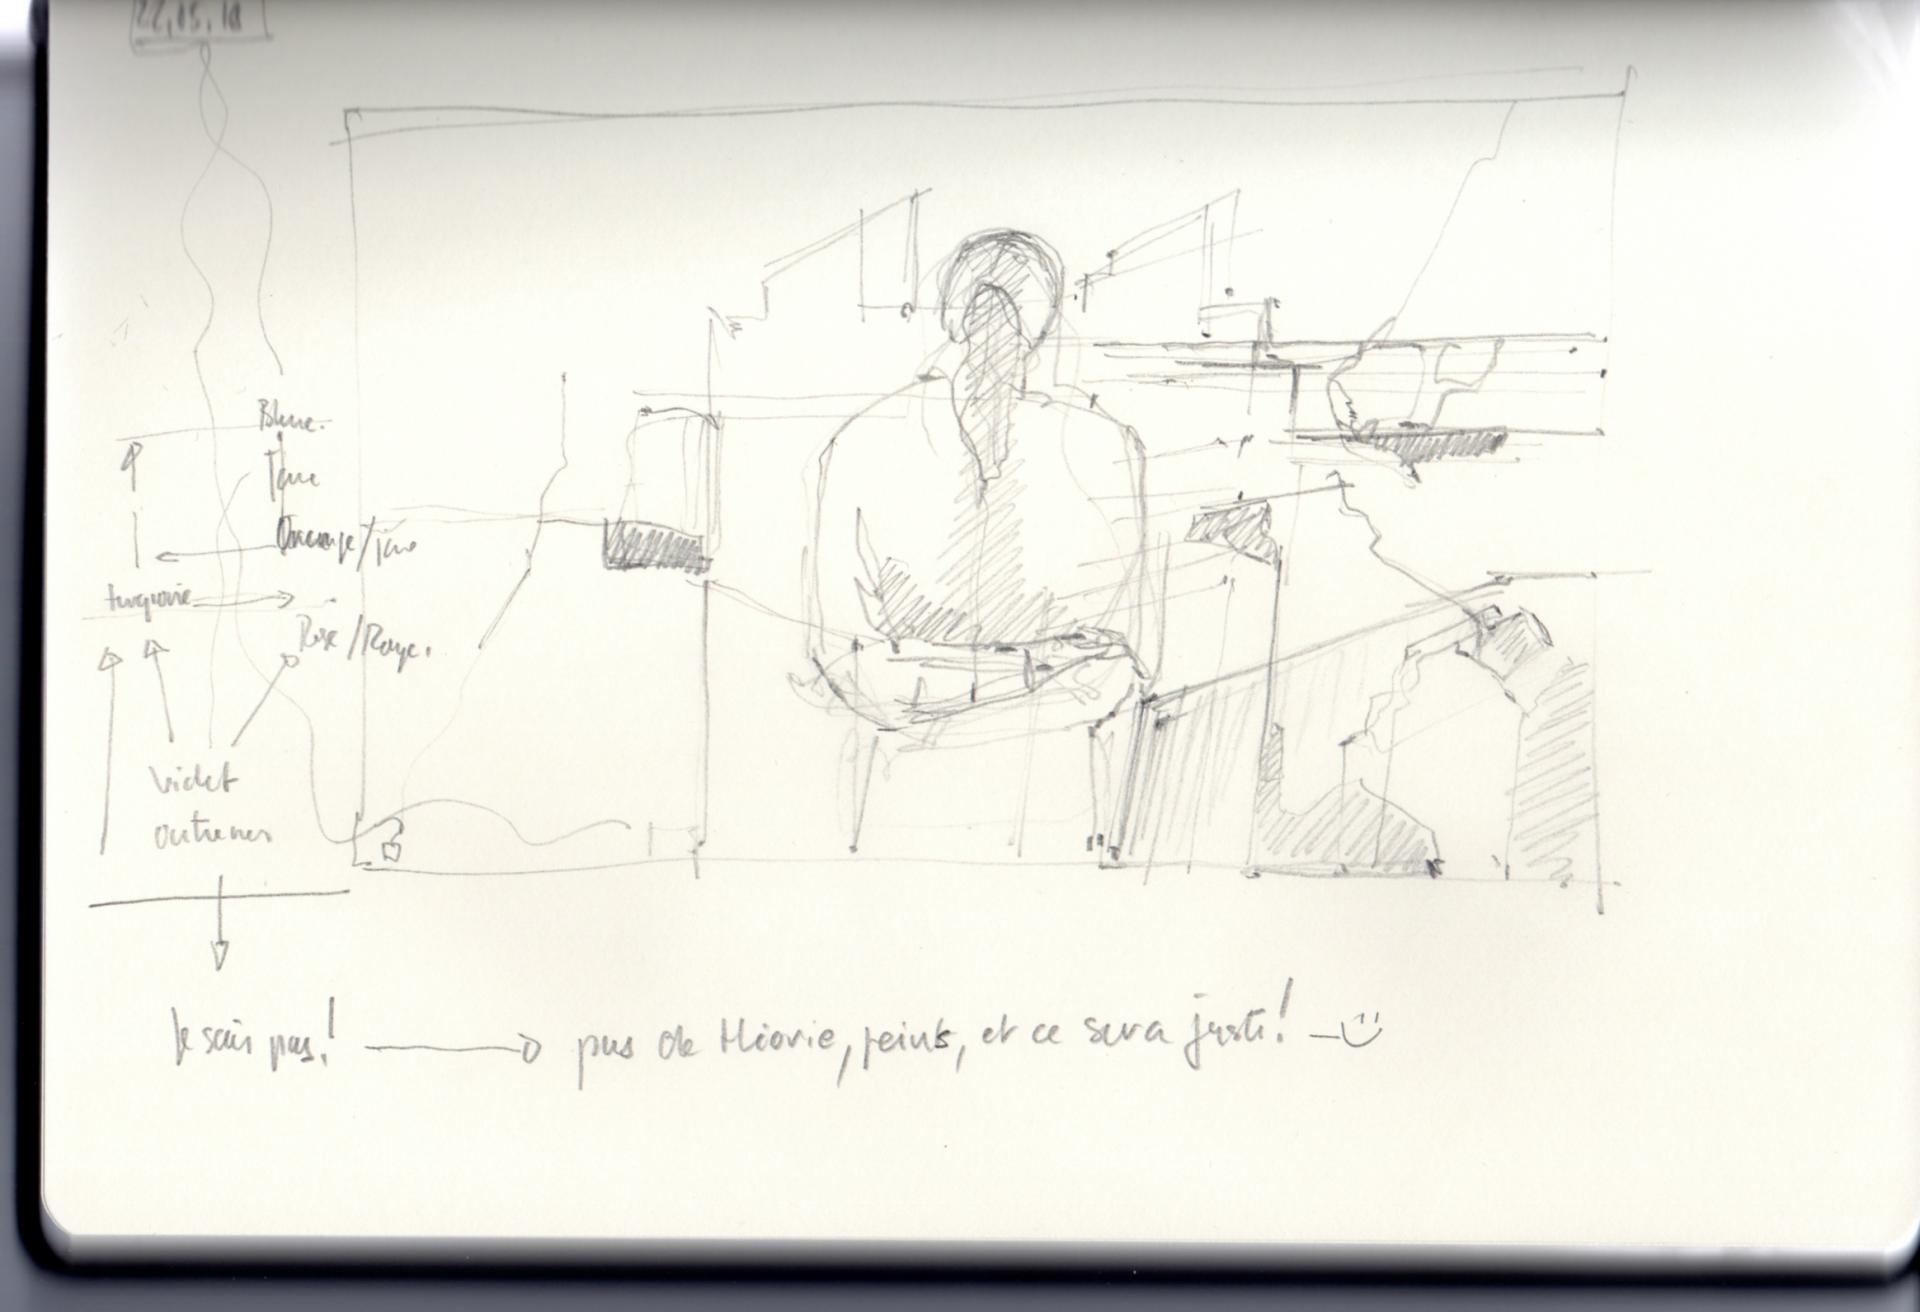 22.05.18
Bleue.
Jaune
Orange/jaune
turquoise
Rose/Rouge.
Violet
outremer
Je sais pas! pas de théorie, peins, et ce sera juste!